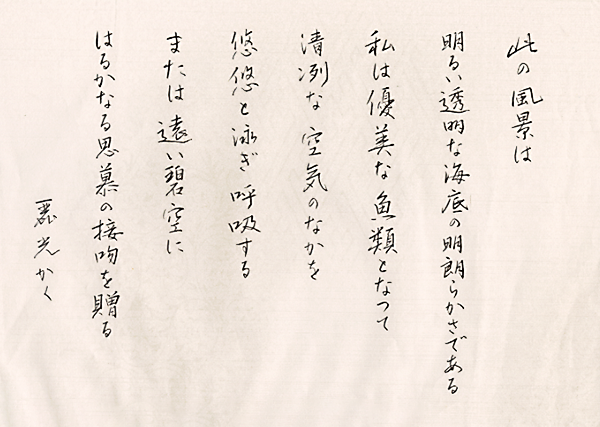 此の風景は
明るい透明な海底の明朗らかさである
私は優美な魚類となつて
清冽な空気のなかを
悠悠と泳ぎ呼吸する
または遠い碧空に
はるかなる思慕の接吻を贈る
麗光かく